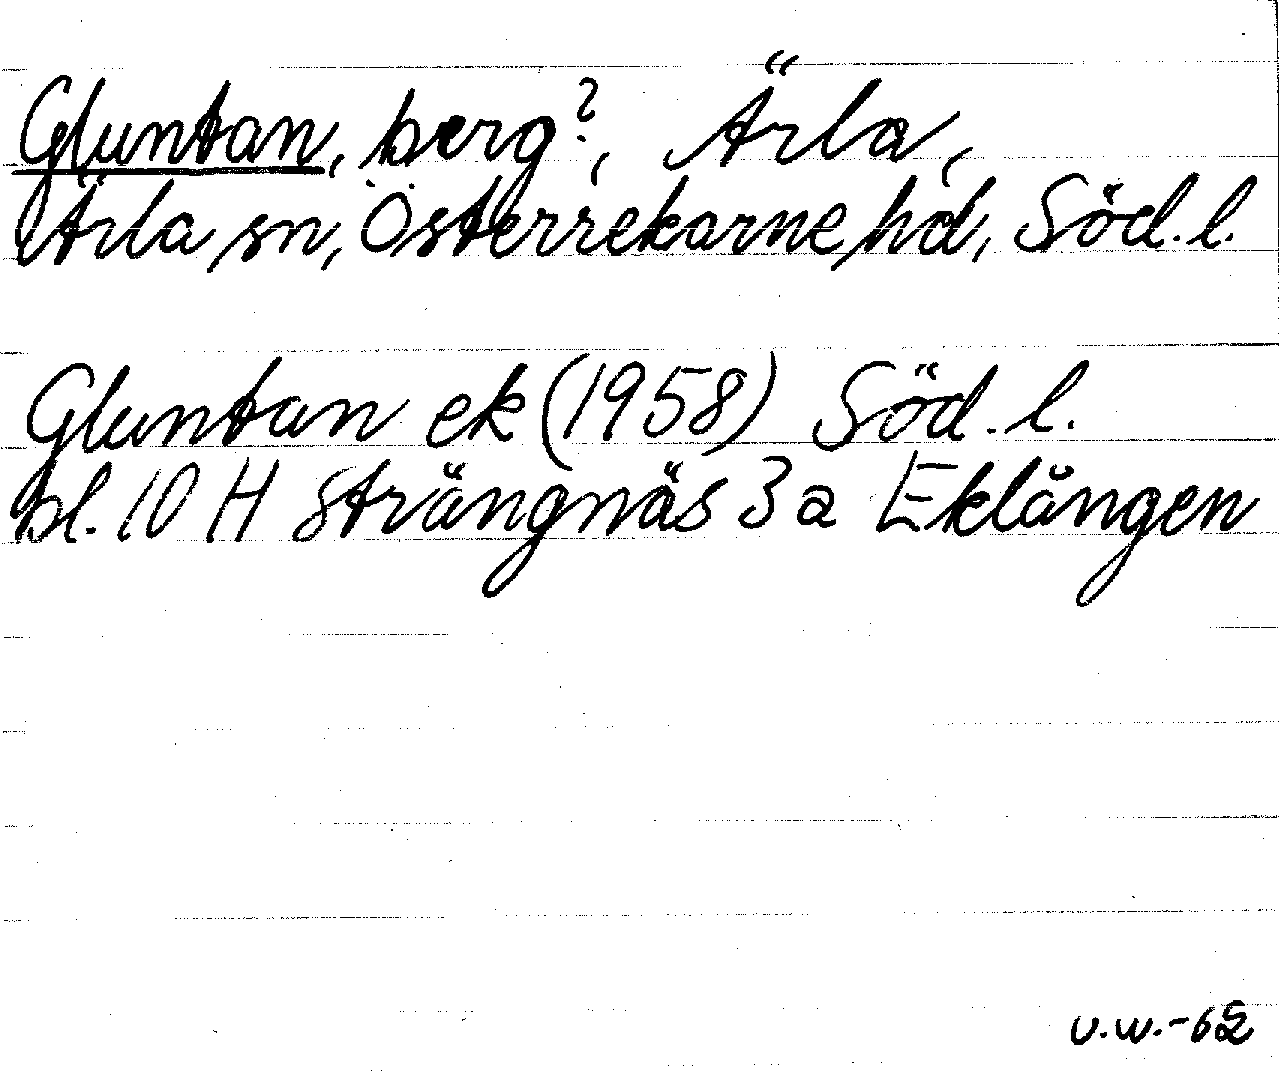 Gluntan, berg?, Ärla,
Ärla sn, Österrekarne hd, Söd.l.
Gluntan ek (1958) Söd.l.
bl. 10 H Strängnäs 3 a Eklången
U.W.-62